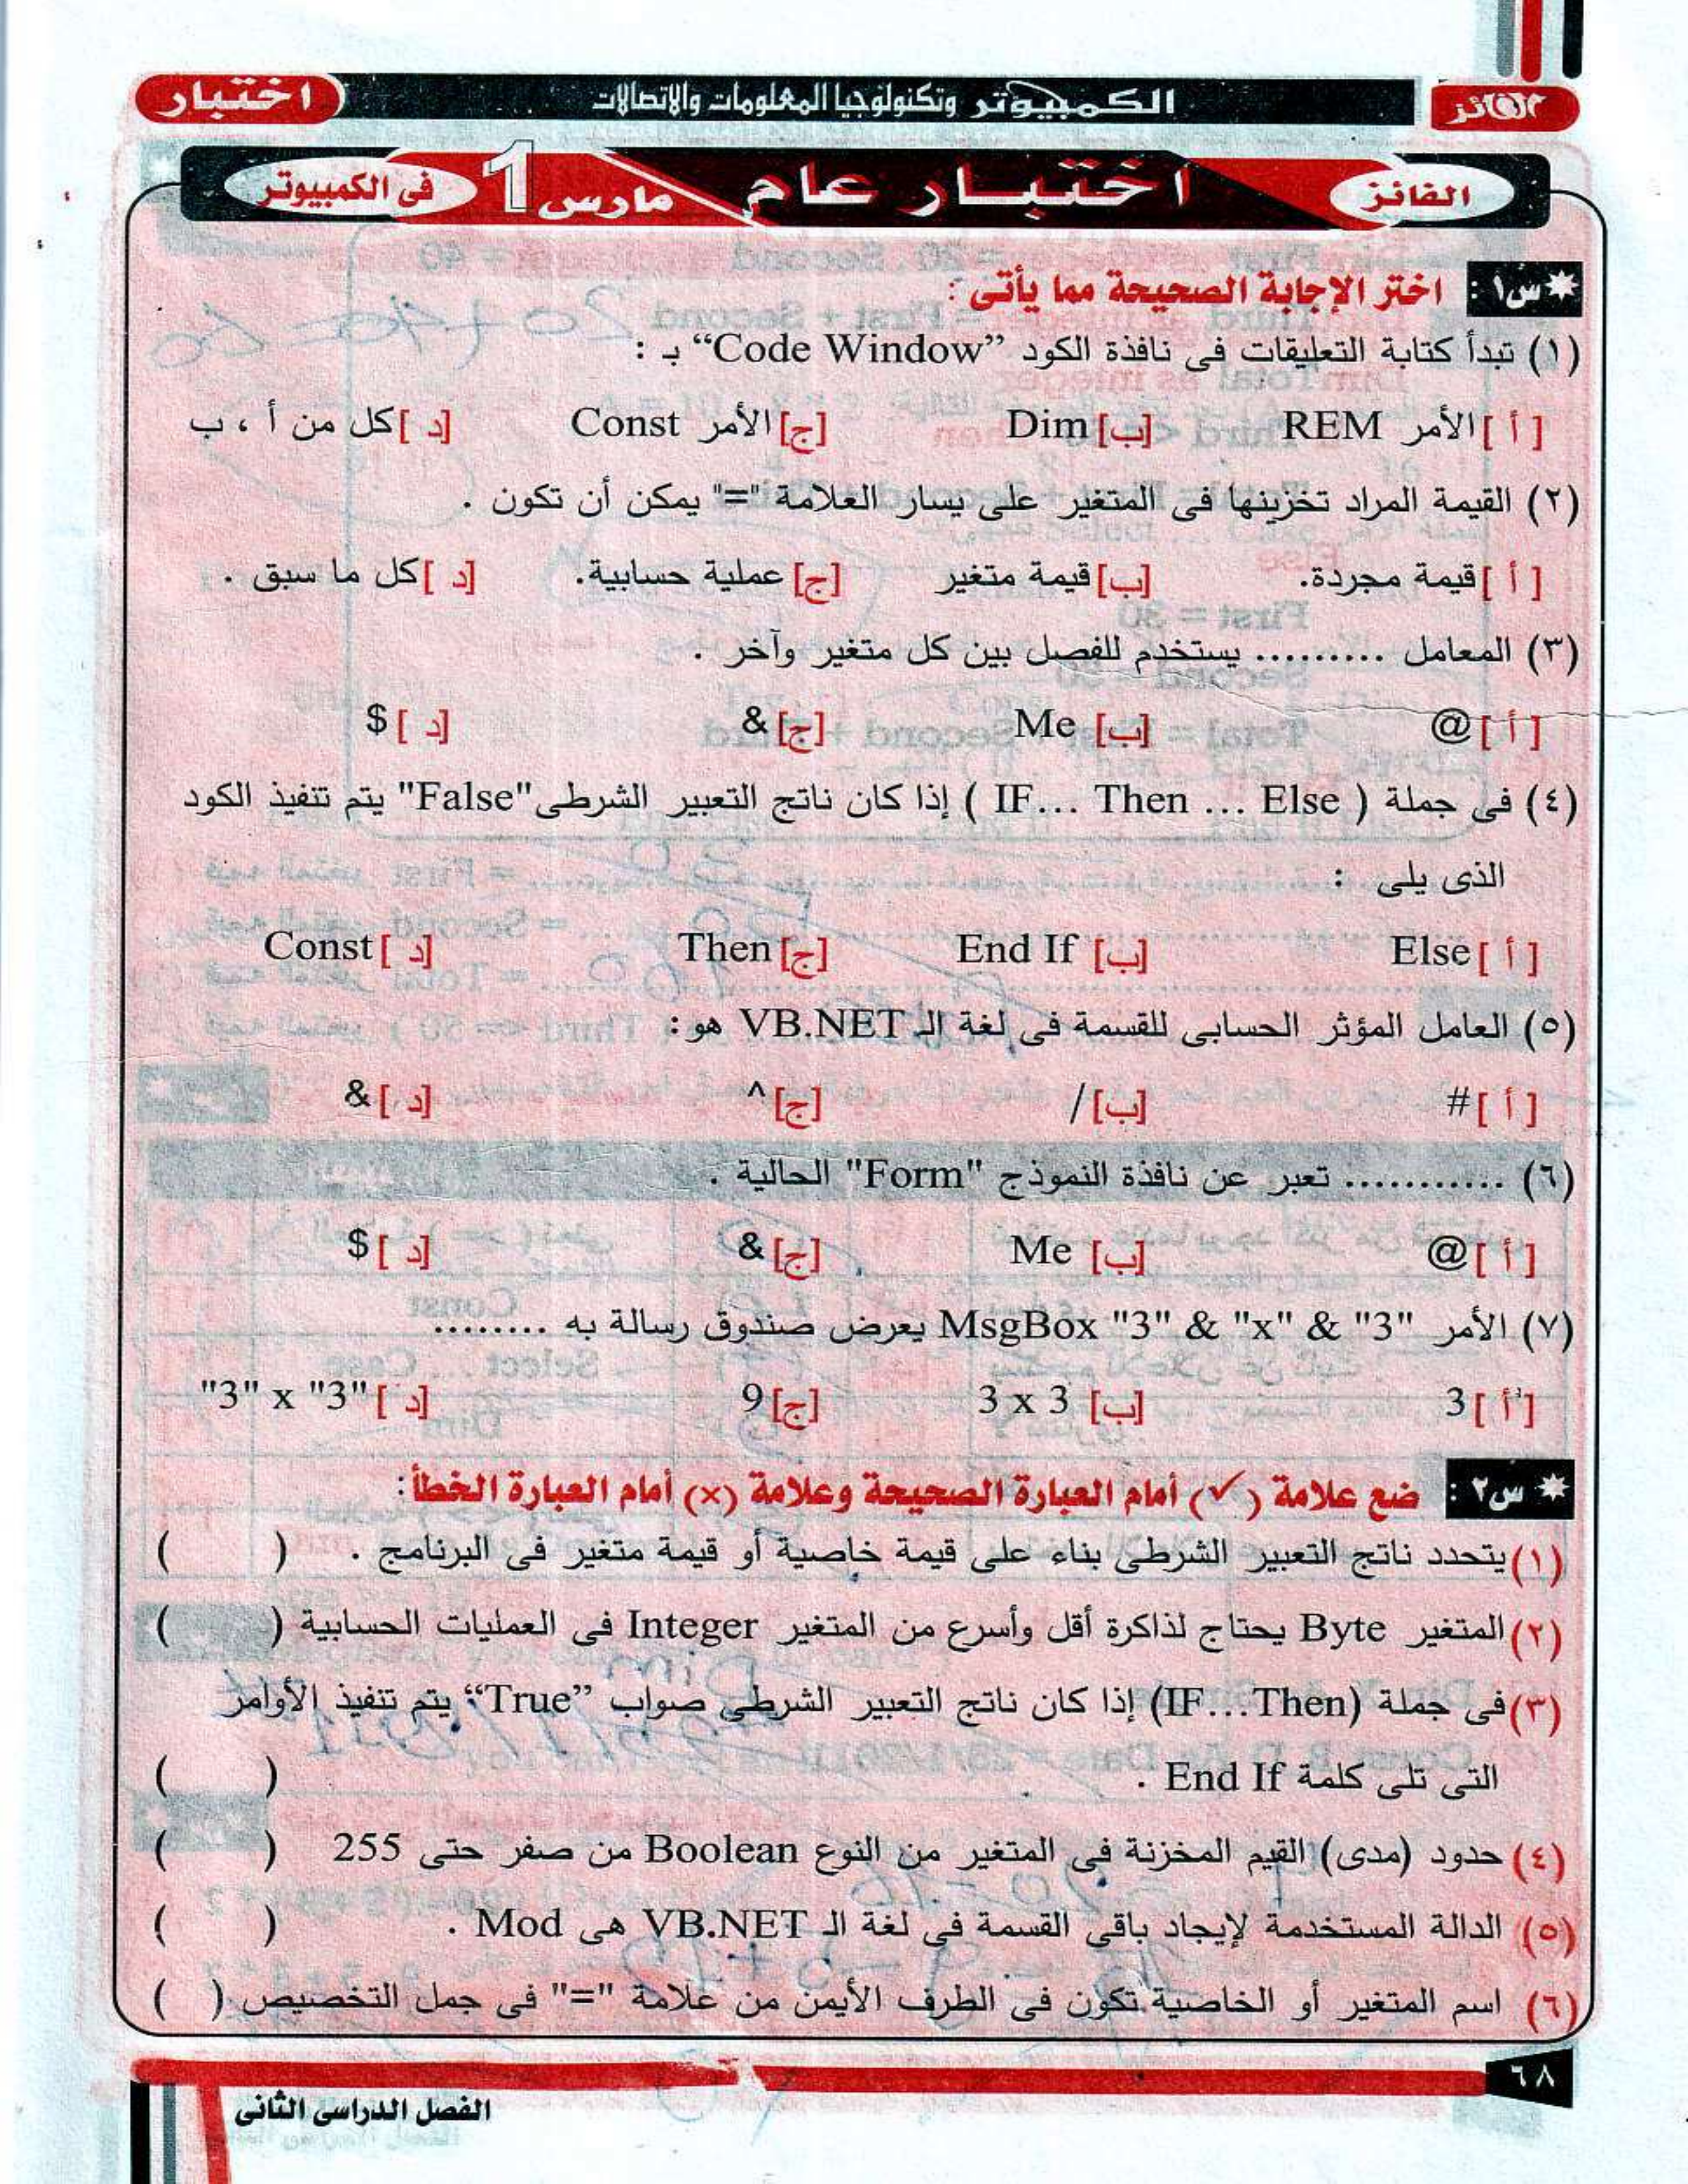 الفائز
الكمبيوتر وتكنولوجيا المعلومات والاتصالات
اختبار
الفائز
اختبار عام
مارس 1
فى الكمبيوتر
س١ : اختر الإجابة الصحيحة مما يأتى :
(١) تبدأ كتابة التعليقات فى نافذة الكود “Code Window” بـ :
[ أ ] الأمر REM [ب] Dim [ج] الأمر Const [ د ] كل من أ ، ب
(٢) القيمة المراد تخزينها فى المتغير على يسار العلامة "=" يمكن أن تكون .
[ أ ] قيمة مجردة. [ب] قيمة متغير [ج] عملية حسابية. [ د ] كل ما سبق .
(٣) المعامل ......... يستخدم للفصل بين كل متغير وآخر .
[ أ ] @ [ب] Me [ج] & [ د ] $
(٤) فى جملة ( IF... Then ... Else ) إذا كان ناتج التعبير الشرطى "False" يتم تنفيذ الكود
الذى يلى :
[ أ ] Else [ب] End If [ج] Then [ د ] Const
(٥) العامل المؤثر الحسابى للقسمة فى لغة الـ VB.NET هو :
[ أ ] # [ب] / [ج] ^ [ د ] &
(٦) ........... تعبر عن نافذة النموذج "Form" الحالية .
[ أ ] @ [ب] Me [ج] & [ د ] $
(٧) الأمر MsgBox "3" & "x" & "3" يعرض صندوق رسالة به ........
[ أ ] 3 [ب] 3 x 3 [ج] 9 [ د ] "3" x "3"
س٢ : ضع علامة (✓) أمام العبارة الصحيحة وعلامة (×) أمام العبارة الخطأ :
(١) يتحدد ناتج التعبير الشرطى بناء على قيمة خاصية أو قيمة متغير فى البرنامج . ( )
(٢) المتغير Byte يحتاج لذاكرة أقل وأسرع من المتغير Integer فى العمليات الحسابية ( )
(٣) فى جملة (IF...Then) إذا كان ناتج التعبير الشرطى صواب “True” يتم تنفيذ الأوامر
التى تلى كلمة End If . ( )
(٤) حدود (مدى) القيم المخزنة فى المتغير من النوع Boolean من صفر حتى 255 ( )
(٥) الدالة المستخدمة لإيجاد باقى القسمة فى لغة الـ VB.NET هى Mod . ( )
(٦) اسم المتغير أو الخاصية تكون فى الطرف الأيمن من علامة "=" فى جمل التخصيص ( )
٦٨
الفصل الدراسى الثانى